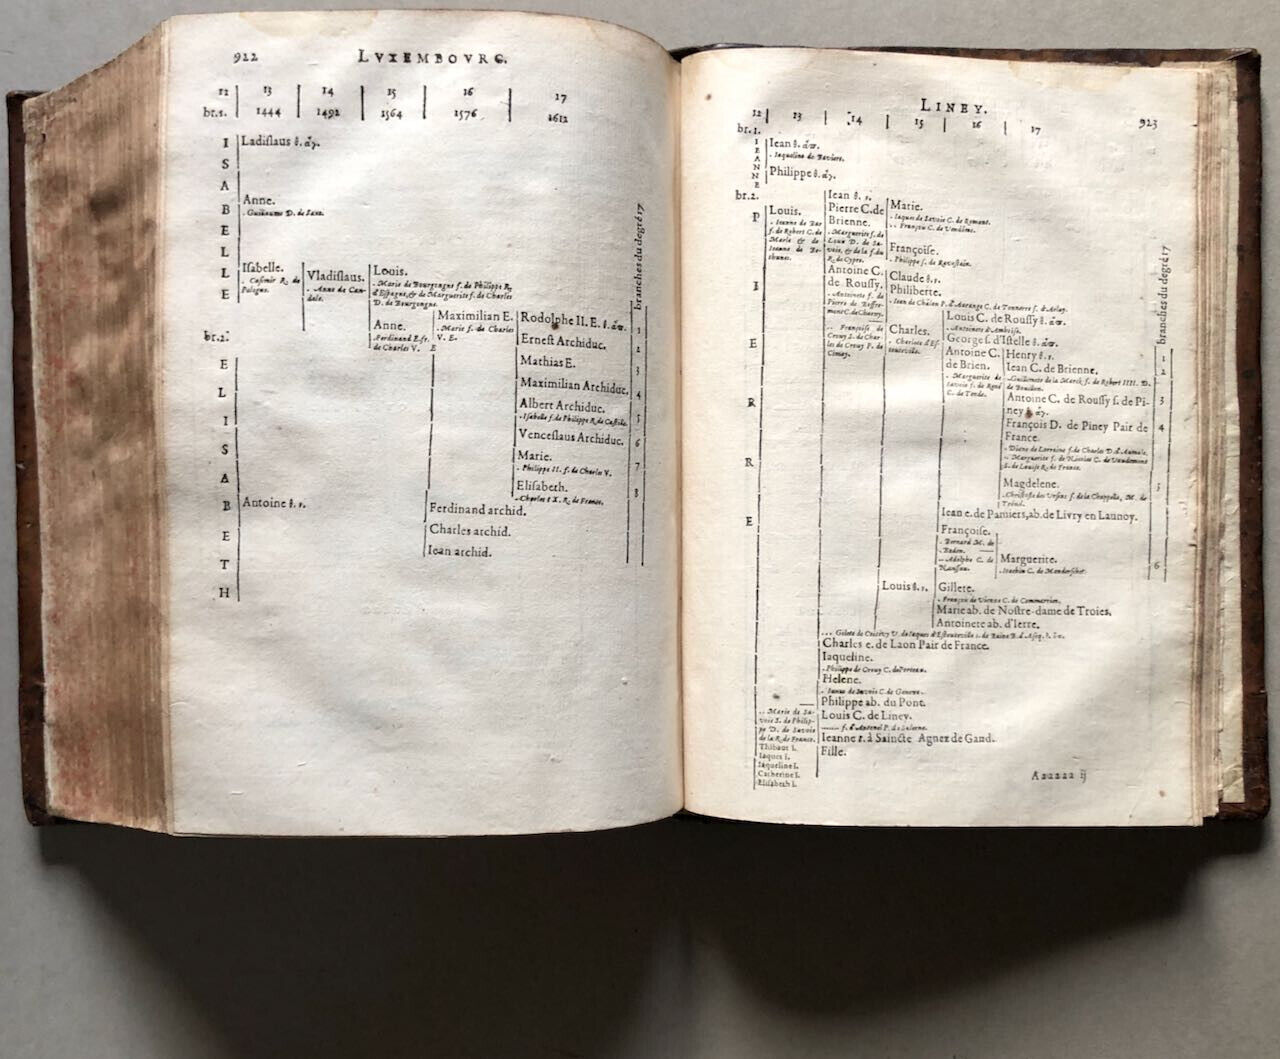 922 LVXEMBOVRG.
12 13 14 15 16 17
br.1. 1444 1492 1564 1576 1612
ISABELLE
Ladiſlaus
Anne.
. Guillaume D. de Saxe.
Iſabelle.
. Caſimir R. de
Pologne.
Vladiſlaus.
. Anne de Can-
dale.
Louis.
. Marie de Bourgongne f. de Philippe R.
d'Eſpagne, & de Marguerite f. de Charles
D. de Bourgongne.
Anne.
. Ferdinand E. fr.
de Charles V.
Maximilian E.
. Marie f. de Charles
V. E.
E
Rodolphe II. E.
Erneſt Archiduc.
Mathias E.
Maximilian Archiduc.
Albert Archiduc.
. Iſabelle f. de Philippe R. de Caſtille.
Venceſlaus Archiduc.
Marie.
. Philippe II. f. de Charles V.
Eliſabeth.
. Charles IX. R. de France.
branches du degré 17
1
2
3
4
5
6
7
8
br.2.
ELISABETH
Antoine
Ferdinand archid.
Charles archid.
Iean archid.
LINEY. 923
12 13 14 15 16 17
br.1.
IEANNE
Iean
. Iaqueline de Baviere.
Philippe
br.2.
PIERRE
Louis.
. Ieanne de Bar
f. de Robert C. de
Marle & de
Ieanne de Be-
thunes.
Iean
Pierre C. de
Brienne.
. Marguerite f. de
Louis D. de Sa-
voie, & de la f. du
R. de Cypre.
Antoine C.
de Rouſſy.
. Antoinete f. de
Pierre de Beffre-
mont C. de Charny.
.. Françoiſe de
Crouy S. de Char-
les de Crouy P. de
Cimay.
Marie.
. Iaques de Savoie C. de Romont.
.. François C. de Vendôme.
Françoiſe.
. Philippe ſ. de Raveſtain.
Claude
Philiberte.
. Iean de Châlon P. d'Aurange C. de Tonnerre ſ. d'Arlay.
Charles.
. Charlote d'Eſ-
touteville.
Louis C. de Rouſſy
. Antoinete d'Amboiſe.
George ſ. d'Iſtelle
Antoine C.
de Brien.
. Marguerite de
Savoie f. de René
C. de Tende.
Henry
Iean C. de Brienne.
. Guillemete de la Marck f. de Robert IIII. D.
de Bouillon.
Antoine C. de Rouſſy ſ. de Pi-
ney
François D. de Piney Pair de
France.
. Diane de Lorraine f. de Charles D. d'Aumale.
.. Marguerite f. de Nicolas C. de Vaudemont
S. de Louiſe R. de France.
Magdelene.
. Chriſtofle des Vrſins ſ. de la Chappelle, M. de
Treinel.
branches du degré 17
1
2
3
4
5
6
Iean e. de Pamiers, ab. de Livry en Launoy.
Françoiſe.
. Bernard M. de
Baden.
.. Adolphe C. de
Naſſau.
Marguerite.
. Ioachin C. de Manderſchet.
Louis
Gillete.
. François de Vienne C. de Commarrien.
Marie ab. de Noſtre-dame de Troies.
Antoinete ab. d'Ierre.
Charles e. de Laon Pair de France.
Iaqueline.
. Philippe de Crouy C. de Porteau.
Helene.
. Ianus de Savoie C. de Geneve.
Philippe ab. du Pont.
Louis C. de Liney.
f. d'Antonel P. de Salerne.
Ieanne r. à Saincte Agnez de Gand.
Fille.
.. Marie de Sa-
voie S. de Philip-
pe D. de Savoie
de la R. de France.
Thibaut i.
Iaques i.
Iaqueline i.
Catherine i.
Eliſabeth i.
Aaaaaa ij